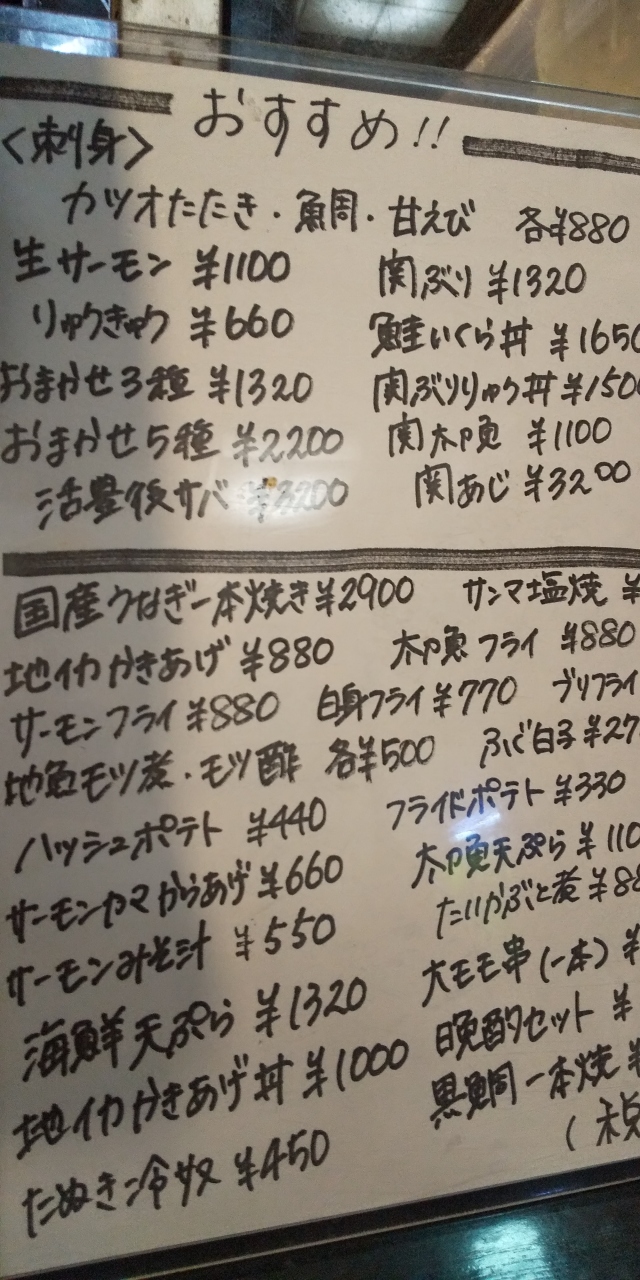 おすすめ!!
<刺身>
カツオたたき・魚周・甘えび 各¥880
生サーモン ¥1100 関ぶり ¥1320
りゅうきゅう ¥660 鮭いくら丼 ¥1650
おまかせ3種 ¥1320 関ぶりりゅう丼 ¥1500
おまかせ5種 ¥2200 関太刀魚 ¥1100
活豊後サバ ¥3200 関あじ ¥3200
国産うなぎ一本焼き ¥2900 サンマ塩焼 ¥
地イカかきあげ ¥880 太刀魚フライ ¥880
サーモンフライ ¥880 白身フライ ¥770 ブリフライ
地魚モツ煮・モツ酢 各¥500 ふぐ白子 ¥27
ハッシュポテト ¥440 フライドポテト ¥330
サーモンカマからあげ ¥660 太刀魚天ぷら ¥110
サーモンみそ汁 ¥550 たいかぶと煮 ¥88
海鮮天ぷら ¥1320 大モモ串(一本) ¥
地イカかきあげ丼 ¥1000 晩酌セット ¥
たぬき冷奴 ¥450 黒鯛一本焼 ¥
(税